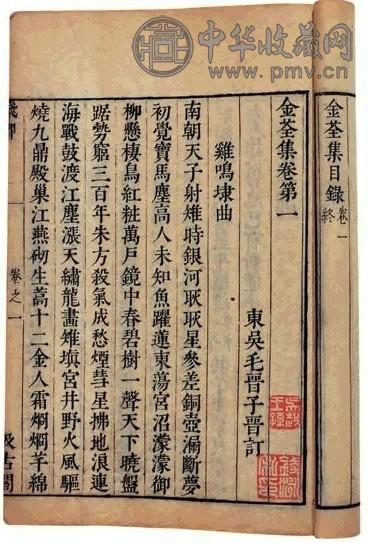 中华收藏网
www.pmv.cn
金荃集目錄
卷一
終
金荃集卷第一
東吳毛晉子晉訂
雞鳴埭曲
南朝天子射雉時銀河耿耿星參差銅壺漏斷夢
初覺寶馬塵高人未知魚躍蓮東蕩宮沼濛濛御
柳懸棲鳥紅粧萬戶鏡中春碧樹一聲天下曉盤
踞勢窮三百年朱方殺氣成愁煙彗星拂地浪連
海戰鼓渡江塵漲天繡龍畫雉塡宮井野火風驅
燒九鼎殿巢江燕砌生蒿十二金人霜烱烱芊綿
卷之一
汲古閣